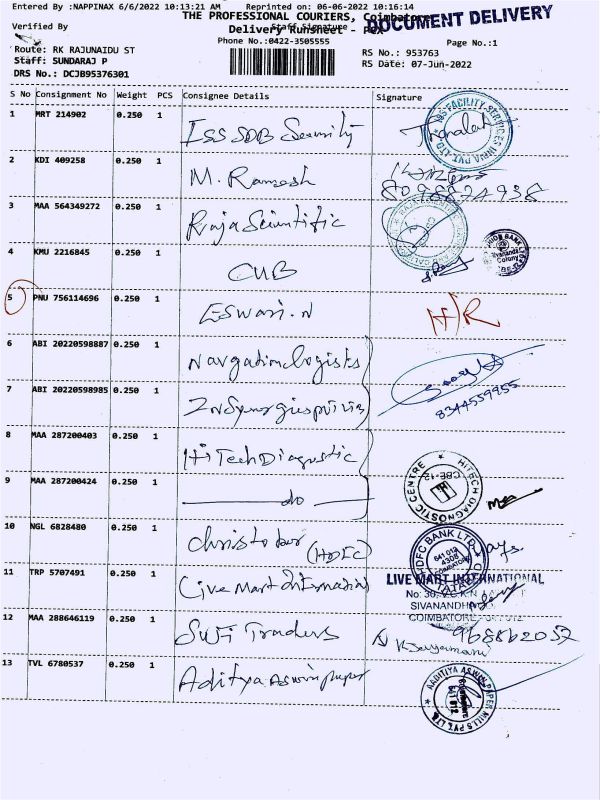 Entered By :NAPPINAX 6/6/2022 10:13:21 AM Reprinted on: 06-06-2022 10:16:14
THE PROFESSIONAL COURIERS, Coimbatore
DOCUMENT DELIVERY
Verified By Staff Signature
Delivery Runsheet - PCX
Phone No.:0422-3505555 Page No.:1
Route: RK RAJUNAIDU ST RS No.: 953763
Staff: SUNDARAJ P RS Date: 07-Jun-2022
DRS No.: DCJB95376301
S No Consignment No Weight PCS Consignee Details Signature
1 MRT 214902 0.250 1 ISS SDB Security
ISS FACILITY SERVICES INDIA PVT. LTD.
2 KDI 409258 0.250 1 M. Ramesh
8098874938
3 MAA 564349272 0.250 1 Raja Scientific
4 KMU 2216845 0.250 1 CUB
Sivananda Colony
5 PNU 756114696 0.250 1 Eswari.N H/R
6 ABI 20220598887 0.250 1 Navgation logists
7 ABI 20220598985 0.250 1
8344559955
8 MAA 287200403 0.250 1 Hi Tech Diagnostic
HITECH DIAGNOSTIC CENTRE
CBE-12
9 MAA 287200424 0.250 1 do
10 NGL 6828480 0.250 1 Christober (HDFC)
HDFC BANK LTD
641 012
4308
COIMBATORE
TATABAD
11 TRP 5707491 0.250 1 Live Mart International
LIVE MART INTERNATIONAL
No: 30,
SIVANANDH
COIMBATORE
12 MAA 288646119 0.250 1 Traders
9688662052
K Jeyamani
13 TVL 6780537 0.250 1 Aditya Aswin paper
AADITIYA ASWIN PAPER MILLS PVT. LTD.
641 012